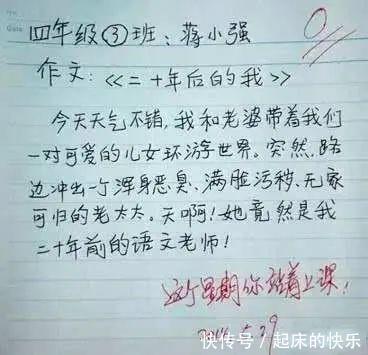 四年级③班：蒋小强
作文：《二十年后的我》
今天天气不错，我和老婆带着我们
一对可爱的儿女环游世界。突然，路
边冲出一个浑身恶臭、满脸污秽、无家
可归的老太太。天啊！她竟然是我
二十年前的语文老师！
这个星期你站着上课！
快传号 / 起床的快乐